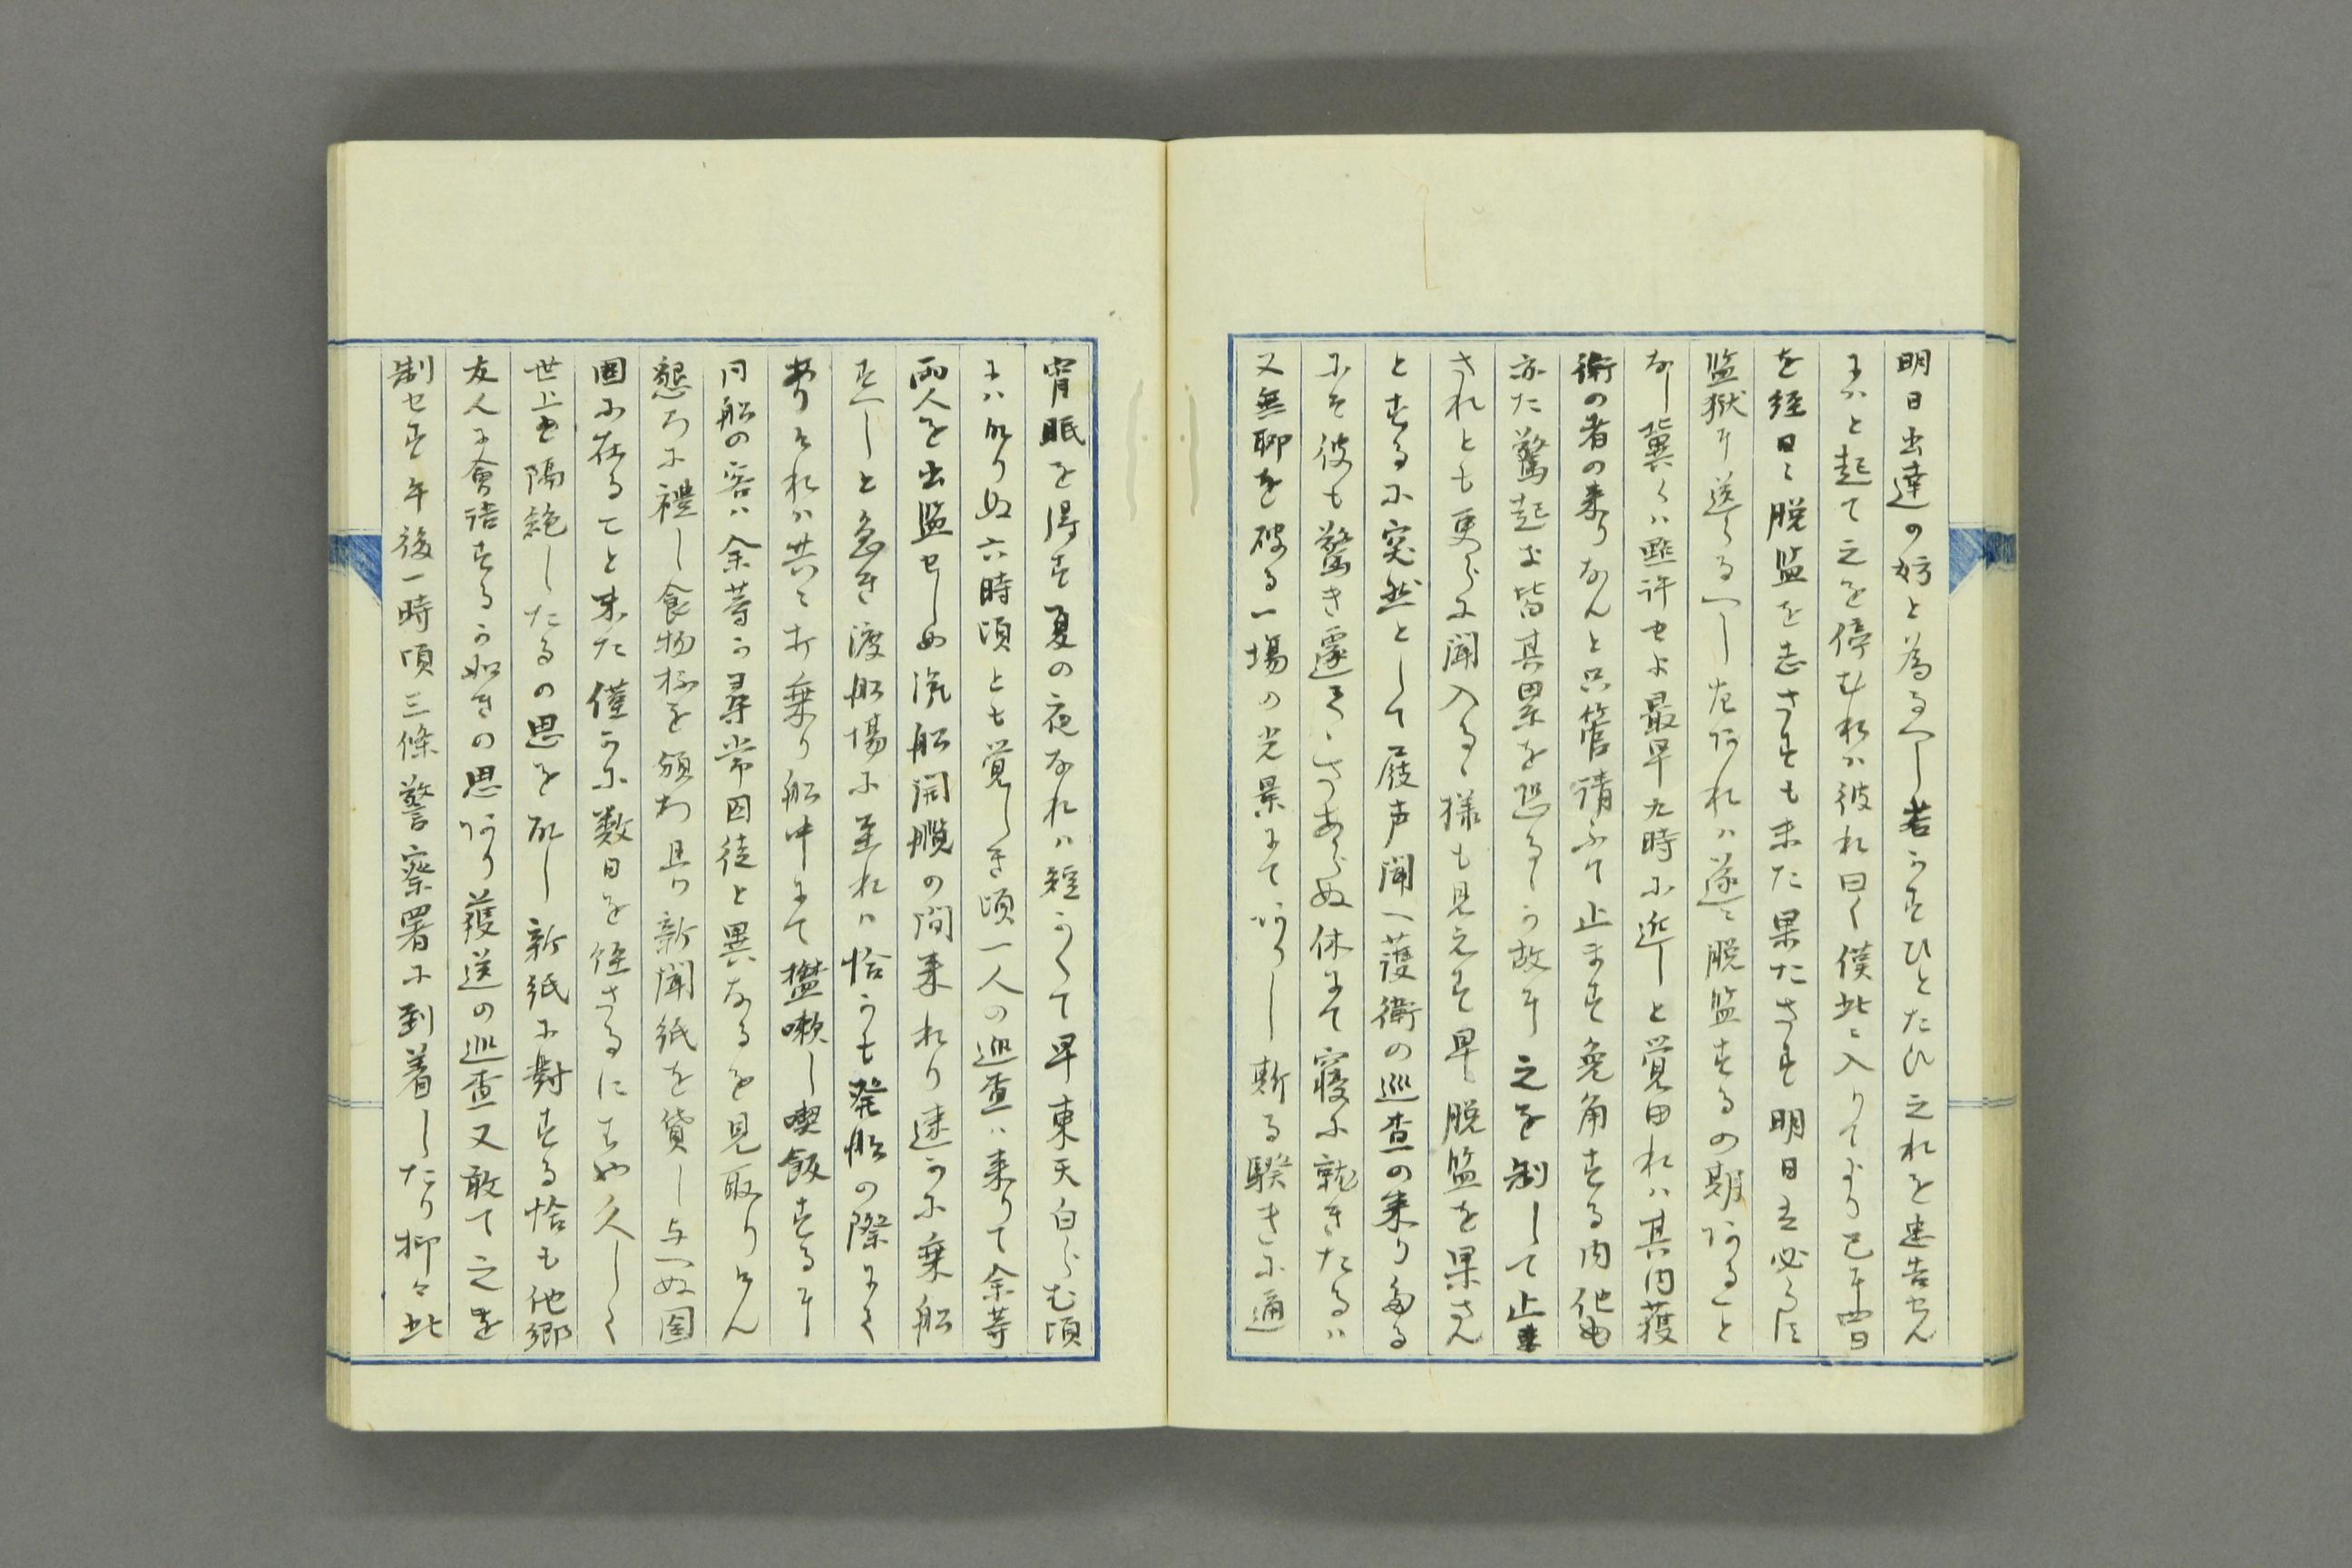 明日出達の妨と為るへし若かすひとたひ之れを忠告せん
にハと起て之を停むれハ彼れ曰く僕此ニ入りてより已ニ四日
を経日ニ脱監を志さすも未た果たさす明日は必らす
監獄ニ送らるへし左すれハ遂ニ脱監するの期あること
なし冀くハ默許せよ最早九時に近しと覚ゆれハ其内護
衛の者の来りなんと只管請ふて止ます兎角する内他も
亦た驚起し皆其累を恐るゝか故ニ之を制して止ま
されとも更らに聞入るゝ様も見えす早脱監を果さん
とするに突然として屐声聞へ護衛の巡査の来り為る
にそ彼も驚き遽てゝさあらぬ体にて寝に就きたるハ
又無聊を破る一場の光景にてありし斯る騒きに通
宵眠を得す夏の夜なれハ短かくて早東天白らむ頃
にハ成りぬ六時頃とも覚しき頃一人の巡査ハ来りて余等
両人を出監せしめ汽船開纜の間来れり速かに乗船
すへしと急き渡船場に至れハ恰かも発船の際にて
ありけれハ共ニ打乗り船中にて盥嗽し喫飯するニ
同船の客ハ余等か尋常囚徒と異なるを見取りけん
懇ろに禮し食物抔を頒ち且つ新聞紙を貸し与へぬ囹
圄に在ること未た僅かに数日を経さるにはや久しく
世上と隔絶したるの思を成し新紙に對する恰も他郷
友人に會語するか如きの思あり護送の巡査又敢て之を
制せす午後一時頃三條警察署に到着したり抑々此